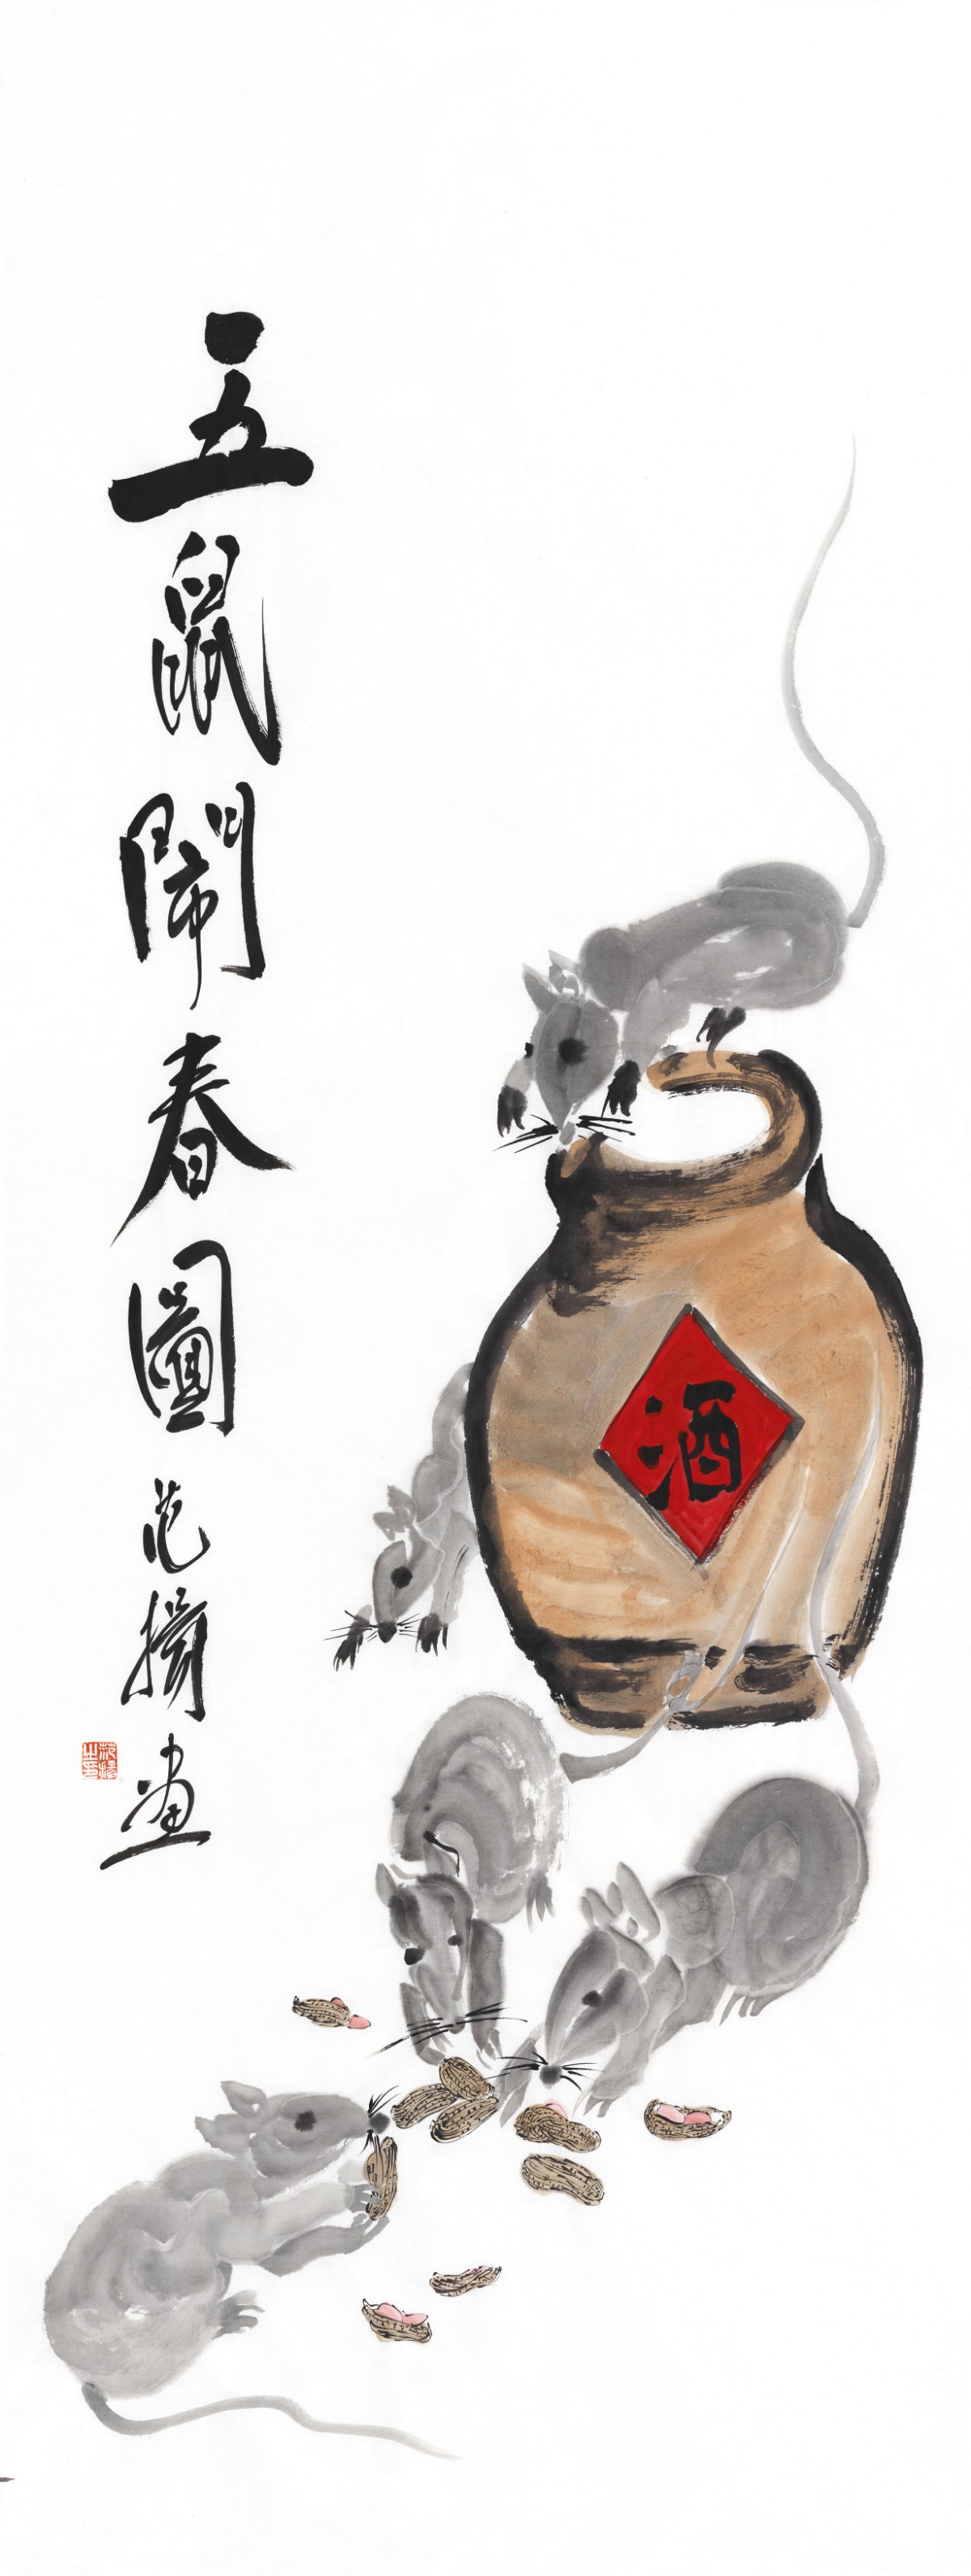 五鼠鬧春圖 范擕畫
酒